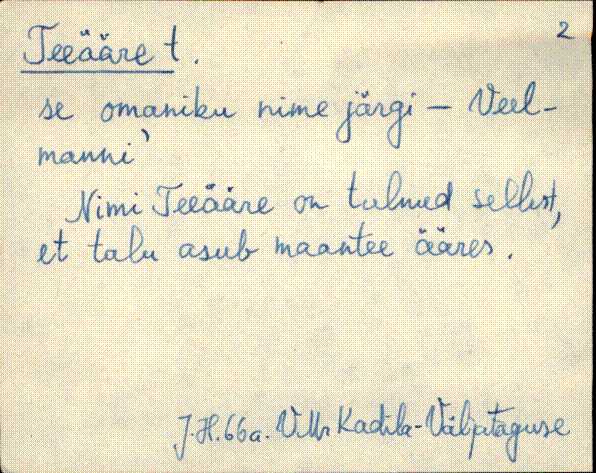 2
Teeääre t.
se omaniku nime järgi – Veel-
manni'
Nimi Teeääre on tulnud sellest,
et talu asub maantee ääres.
J.H.66a. VMr Kadila-Väljataguse